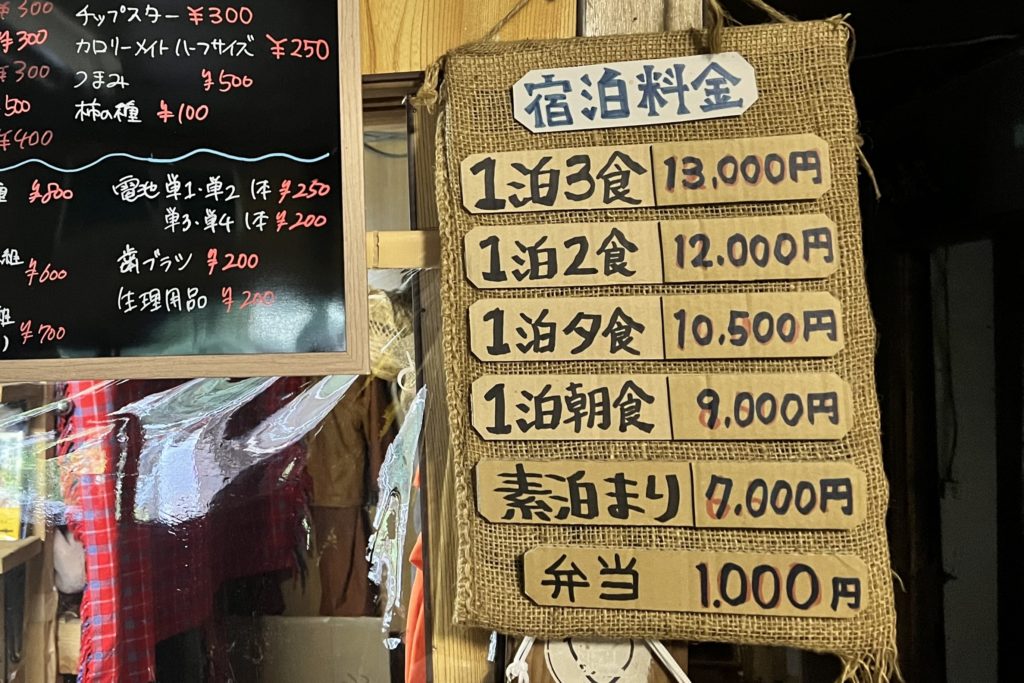 ¥300
¥300
¥300
¥500
¥400
チップスター ¥300
カロリーメイト ハーフサイズ ¥250
つまみ ¥500
柿の種 ¥100
¥800
組 ¥600
¥700
電池 単1・単2 1本 ¥250
単3・単4 1本 ¥200
歯ブラシ ¥200
生理用品 ¥200
宿泊料金
1泊3食 13,000円
1泊2食 12.000円
1泊夕食 10,500円
1泊朝食 9,000円
素泊まり 7,000円
弁当 1.000円